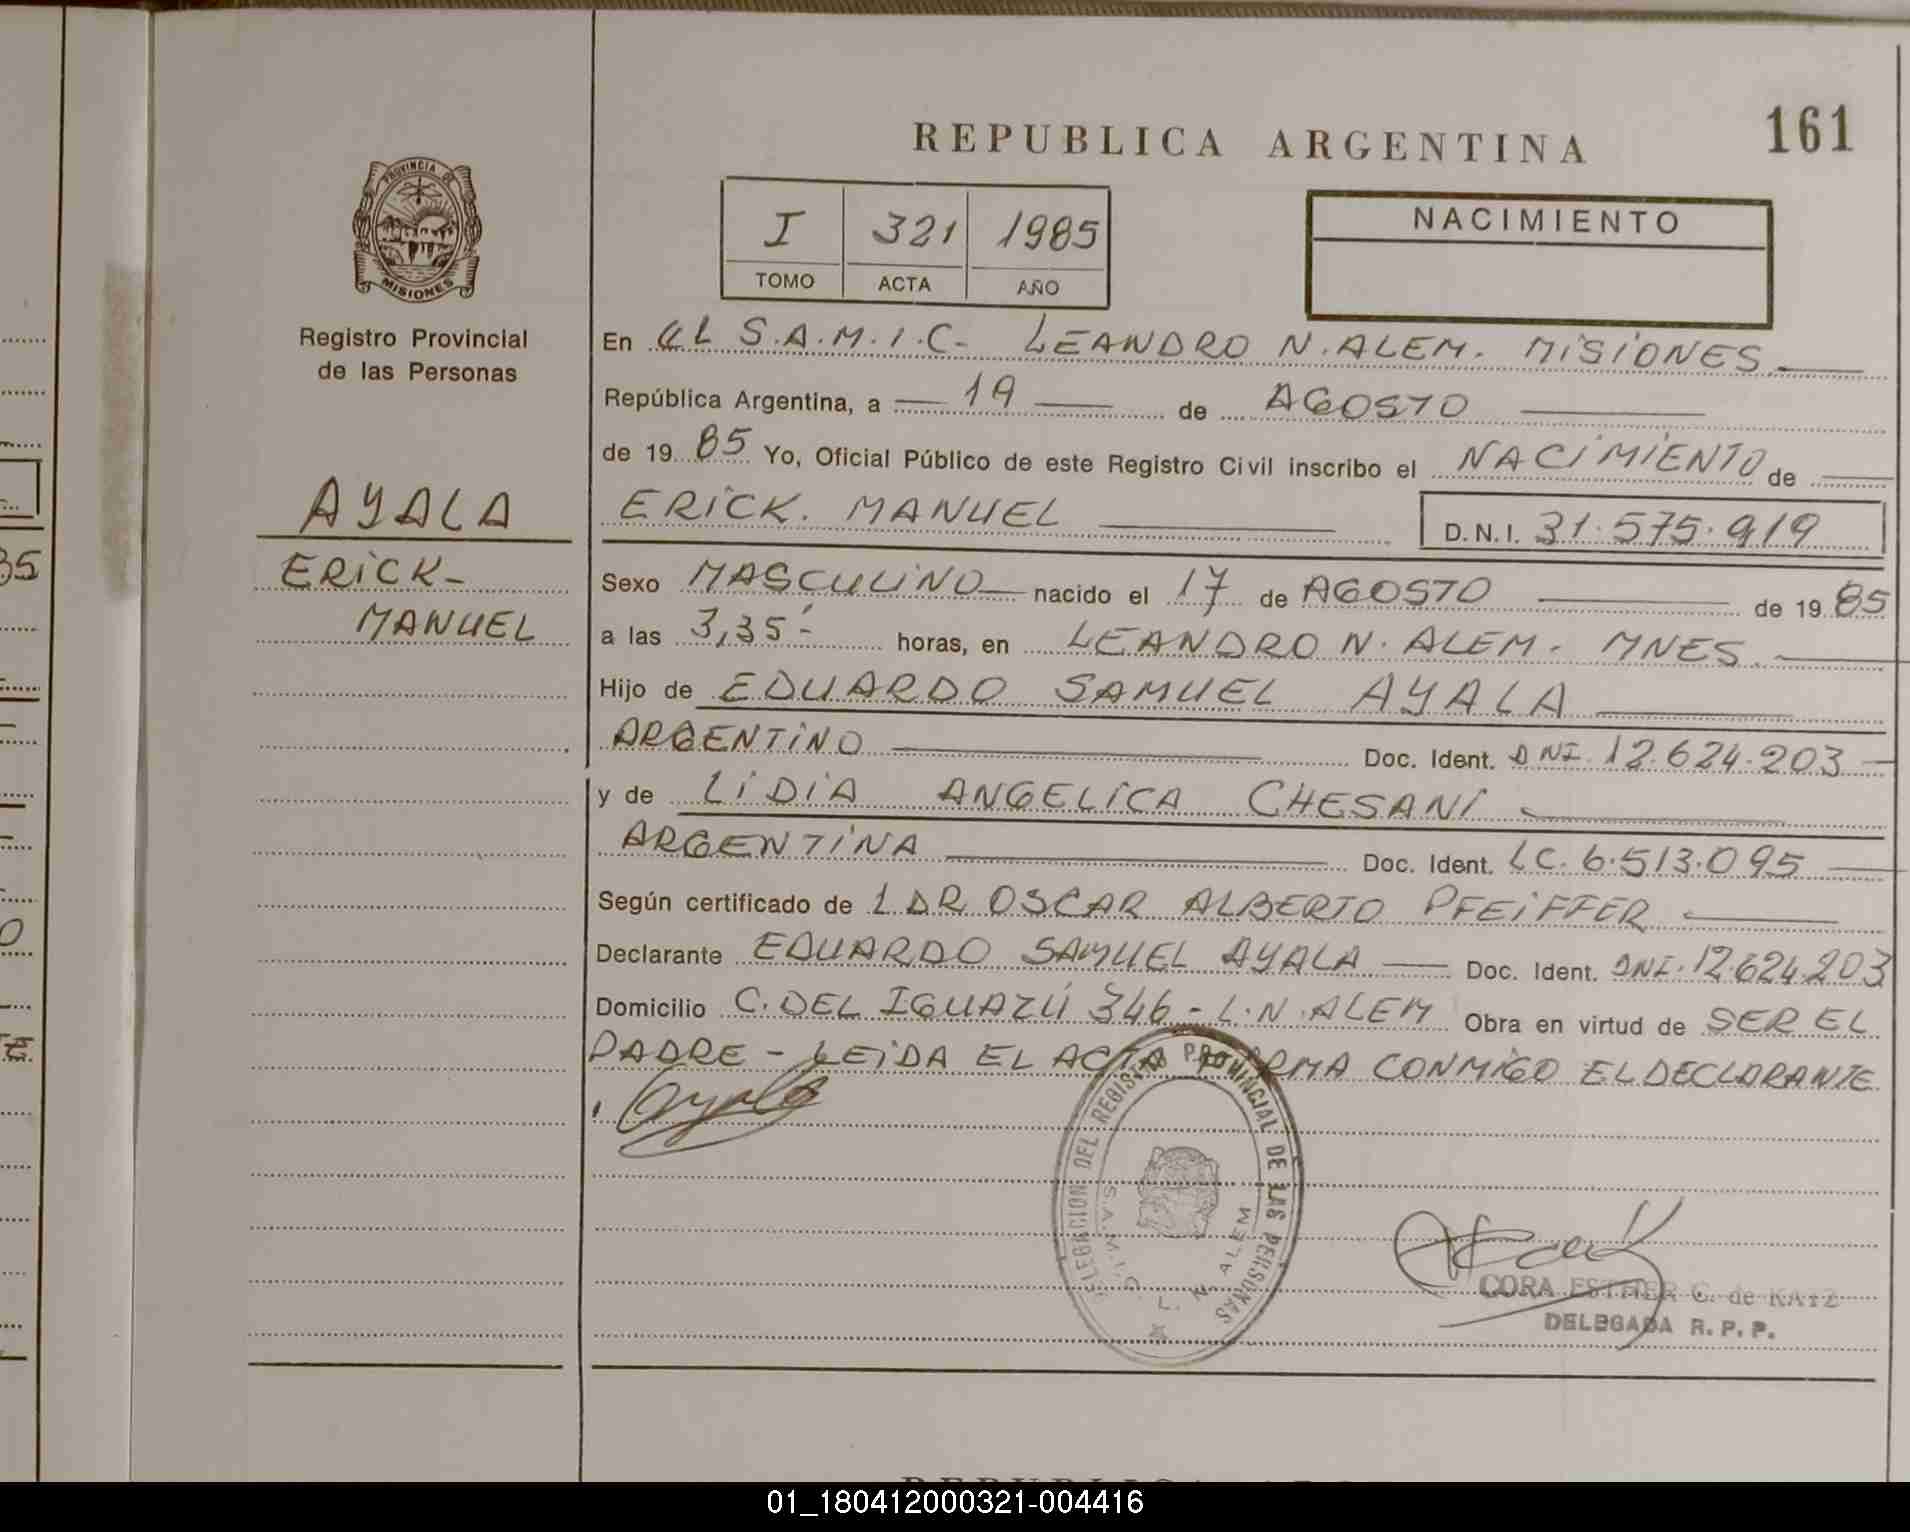 REPUBLICA ARGENTINA
161
PROVINCIA DE
MISIONES
Registro Provincial
de las Personas
I 321 1985
TOMO ACTA AÑO
NACIMIENTO
En EL S.A.M.I.C- LEANDRO N. ALEM. MISIONES
República Argentina, a 19 de AGOSTO
de 19 85 Yo, Oficial Público de este Registro Civil inscribo el NACIMIENTO de
ERICK. MANUEL D.N.I. 31.575.919
AYALA
ERICK-
MANUEL
Sexo MASCULINO nacido el 17 de AGOSTO de 19 85
a las 3,35- horas, en LEANDRO N. ALEM. MNES.
Hijo de EDUARDO SAMUEL AYALA
ARGENTINO Doc. Ident. DNI. 12.624.203
y de LIDIA ANGELICA CHESANI
ARGENTINA Doc. Ident. LC. 6.513.095
Según certificado de 1 DR OSCAR ALBERTO PFEIFFER
Declarante EDUARDO SAMUEL AYALA Doc. Ident. DNI. 12.624.203
Domicilio C. DEL IGUAZÚ 346 - L.N. ALEM Obra en virtud de SER EL
PADRE - LEIDA EL ACTA FIRMA CONMIGO EL DECLARANTE
Ayala
DELEGACION DEL REGISTRO PROVINCIAL DE LAS PERSONAS
S.A.M.I.C. L. N. ALEM
CORA ESTHER C. de KATZ
DELEGADA R. P. P.
35
O
E.
01_180412000321-004416